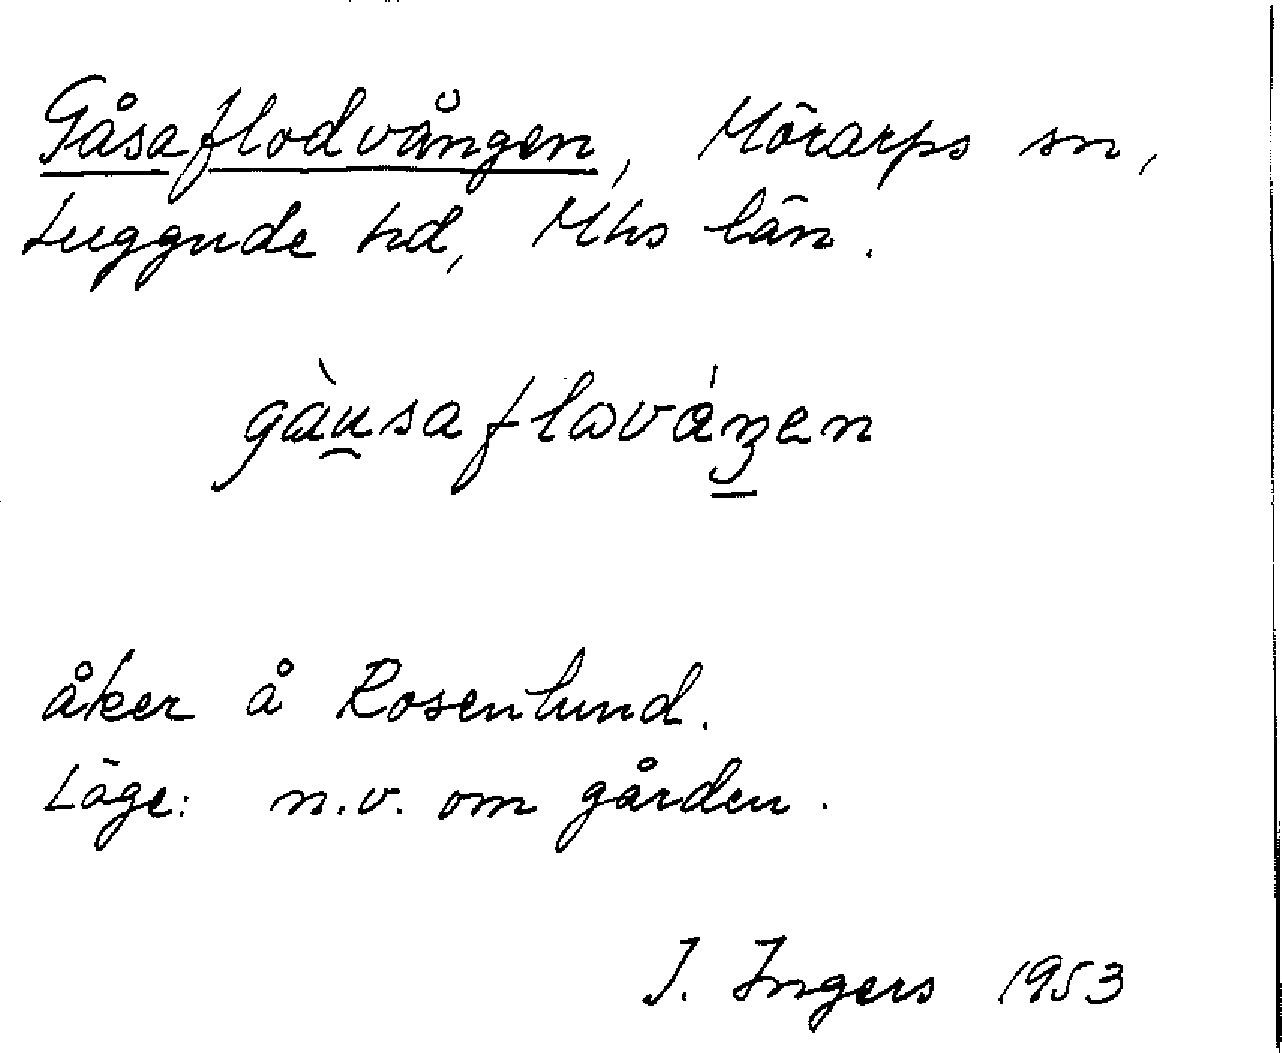 Gåsaflodvången, Mörarps sn,
Luggude hd, Mhs län.
gàusaflωváŋen
åker å Rosenlund.
Läge: n.v. om gården.
I. Ingers 1953